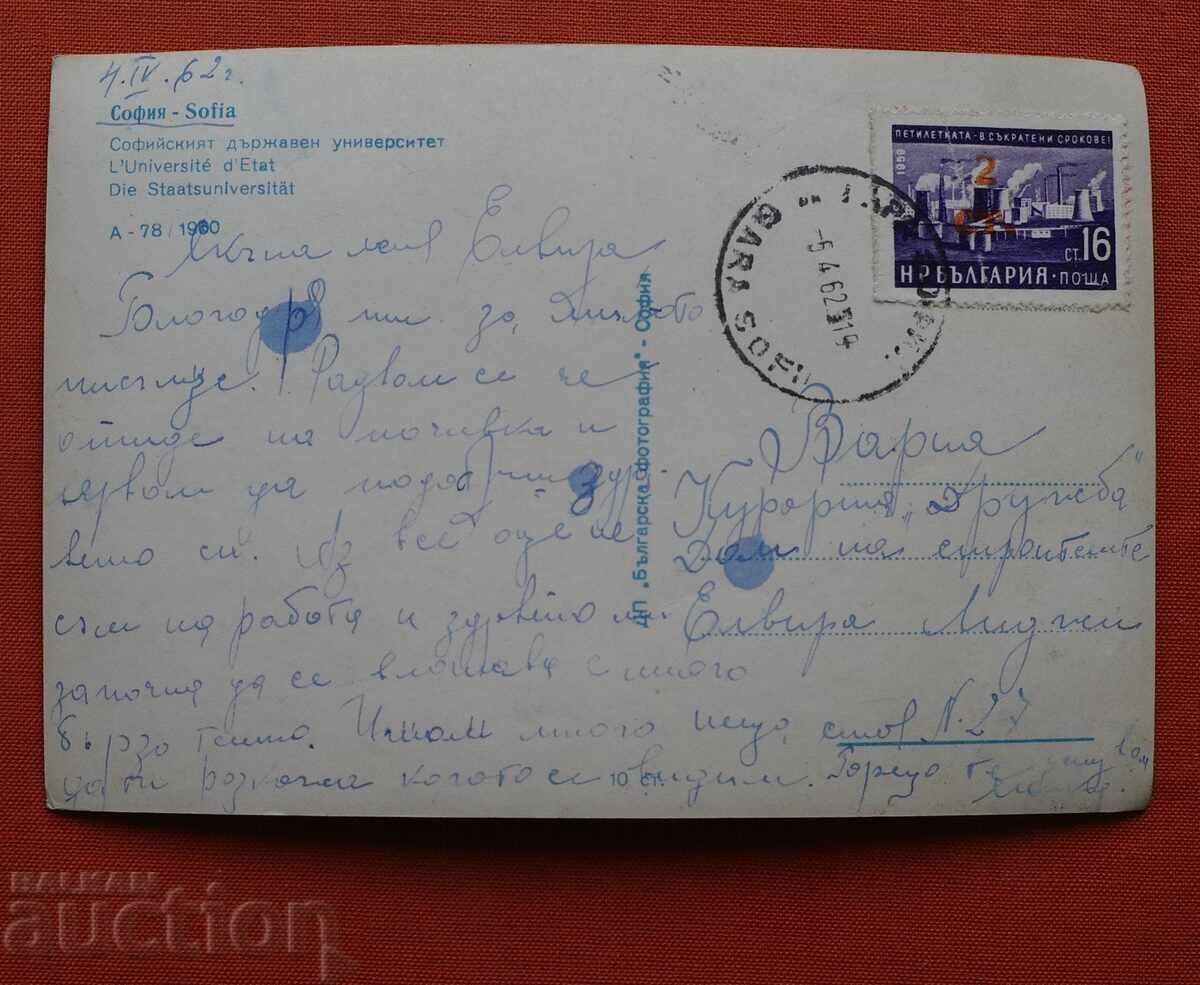 4.IV.62 г.
София - Sofia
Софийският държавен университет
L'Université d'Etat
Die Staatsuniversität
А - 78 / 1960
Елвира
Благодаря ти за милото
писъмце. Радвам се че
отиде на почивка и
вярвам да подобриш здра-
вето си. Аз все още не
съм на работа и здравето ми
започна да се влошава с много
бързо темпо. Имам много неща
да ти разкажа когато се видим. Горещо те
ДП „Българска фотография" - София
10 ст.
ПЕТИЛЕТКАТА - В СЪКРАТЕНИ СРОКОВЕ!
1959
2
СТ.
СТ. 16
НР БЪЛГАРИЯ · ПОЩА
ГАРА СОФИЯ
GARA SOFIA
-6.4.62 19
Варна
Курорта „Дружба"
Дом на строителите
Елвира Лиджи
стая N. 27
БАЛКАН
auction